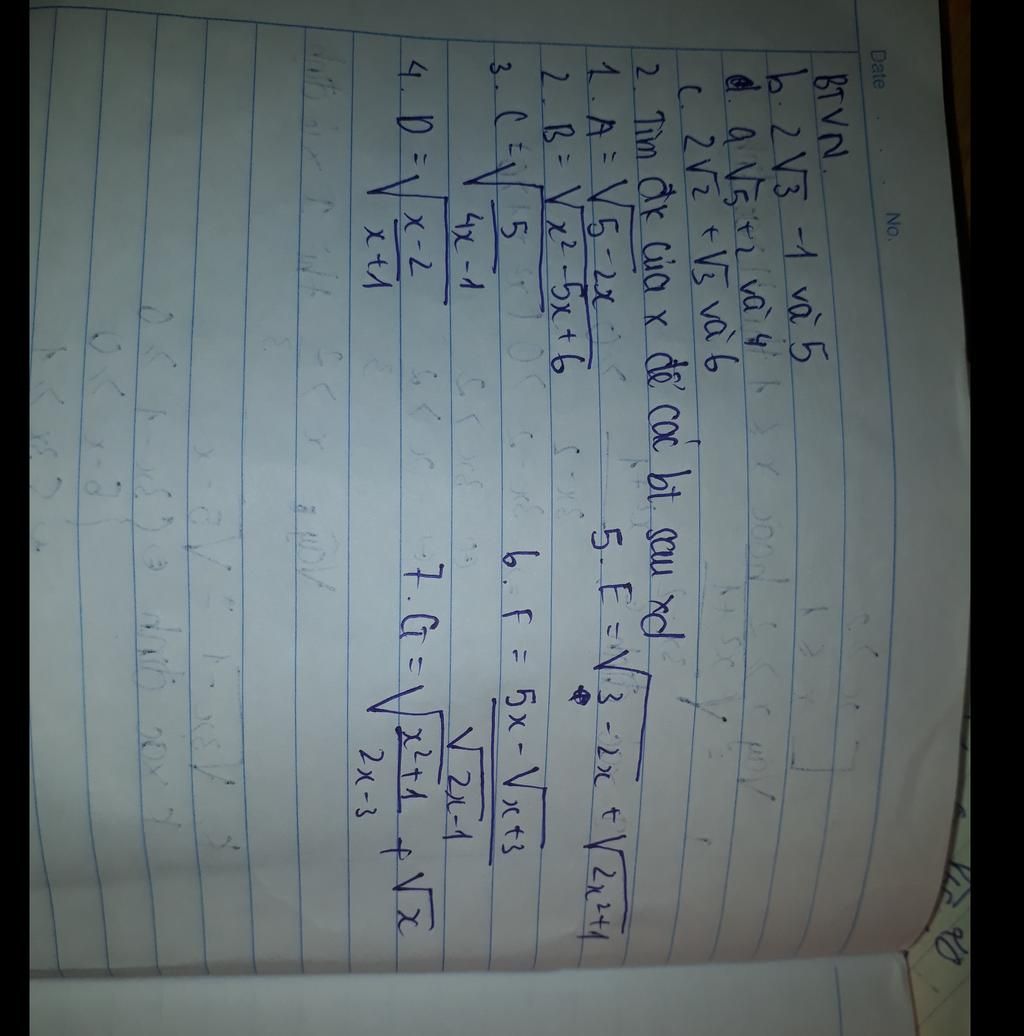 Date No.
BTVN.
b. 2√3 - 1 và 5
d. a √5 + 2 và 4
c. 2√2 + √3 và 6
2. Tìm đk của x để các bt sau xd
1. A = √(5 - 2x)
2. B = √(x² - 5x + 6)
3. C = √(5/(4x - 1))
4. D = √((x - 2)/(x + 1))
5. E = √(3 - 2x) + √(2x² + 1)
6. F = (5x - √(x + 3))/(√(2x - 1))
7. G = √((x² + 1)/(2x - 3)) + √x